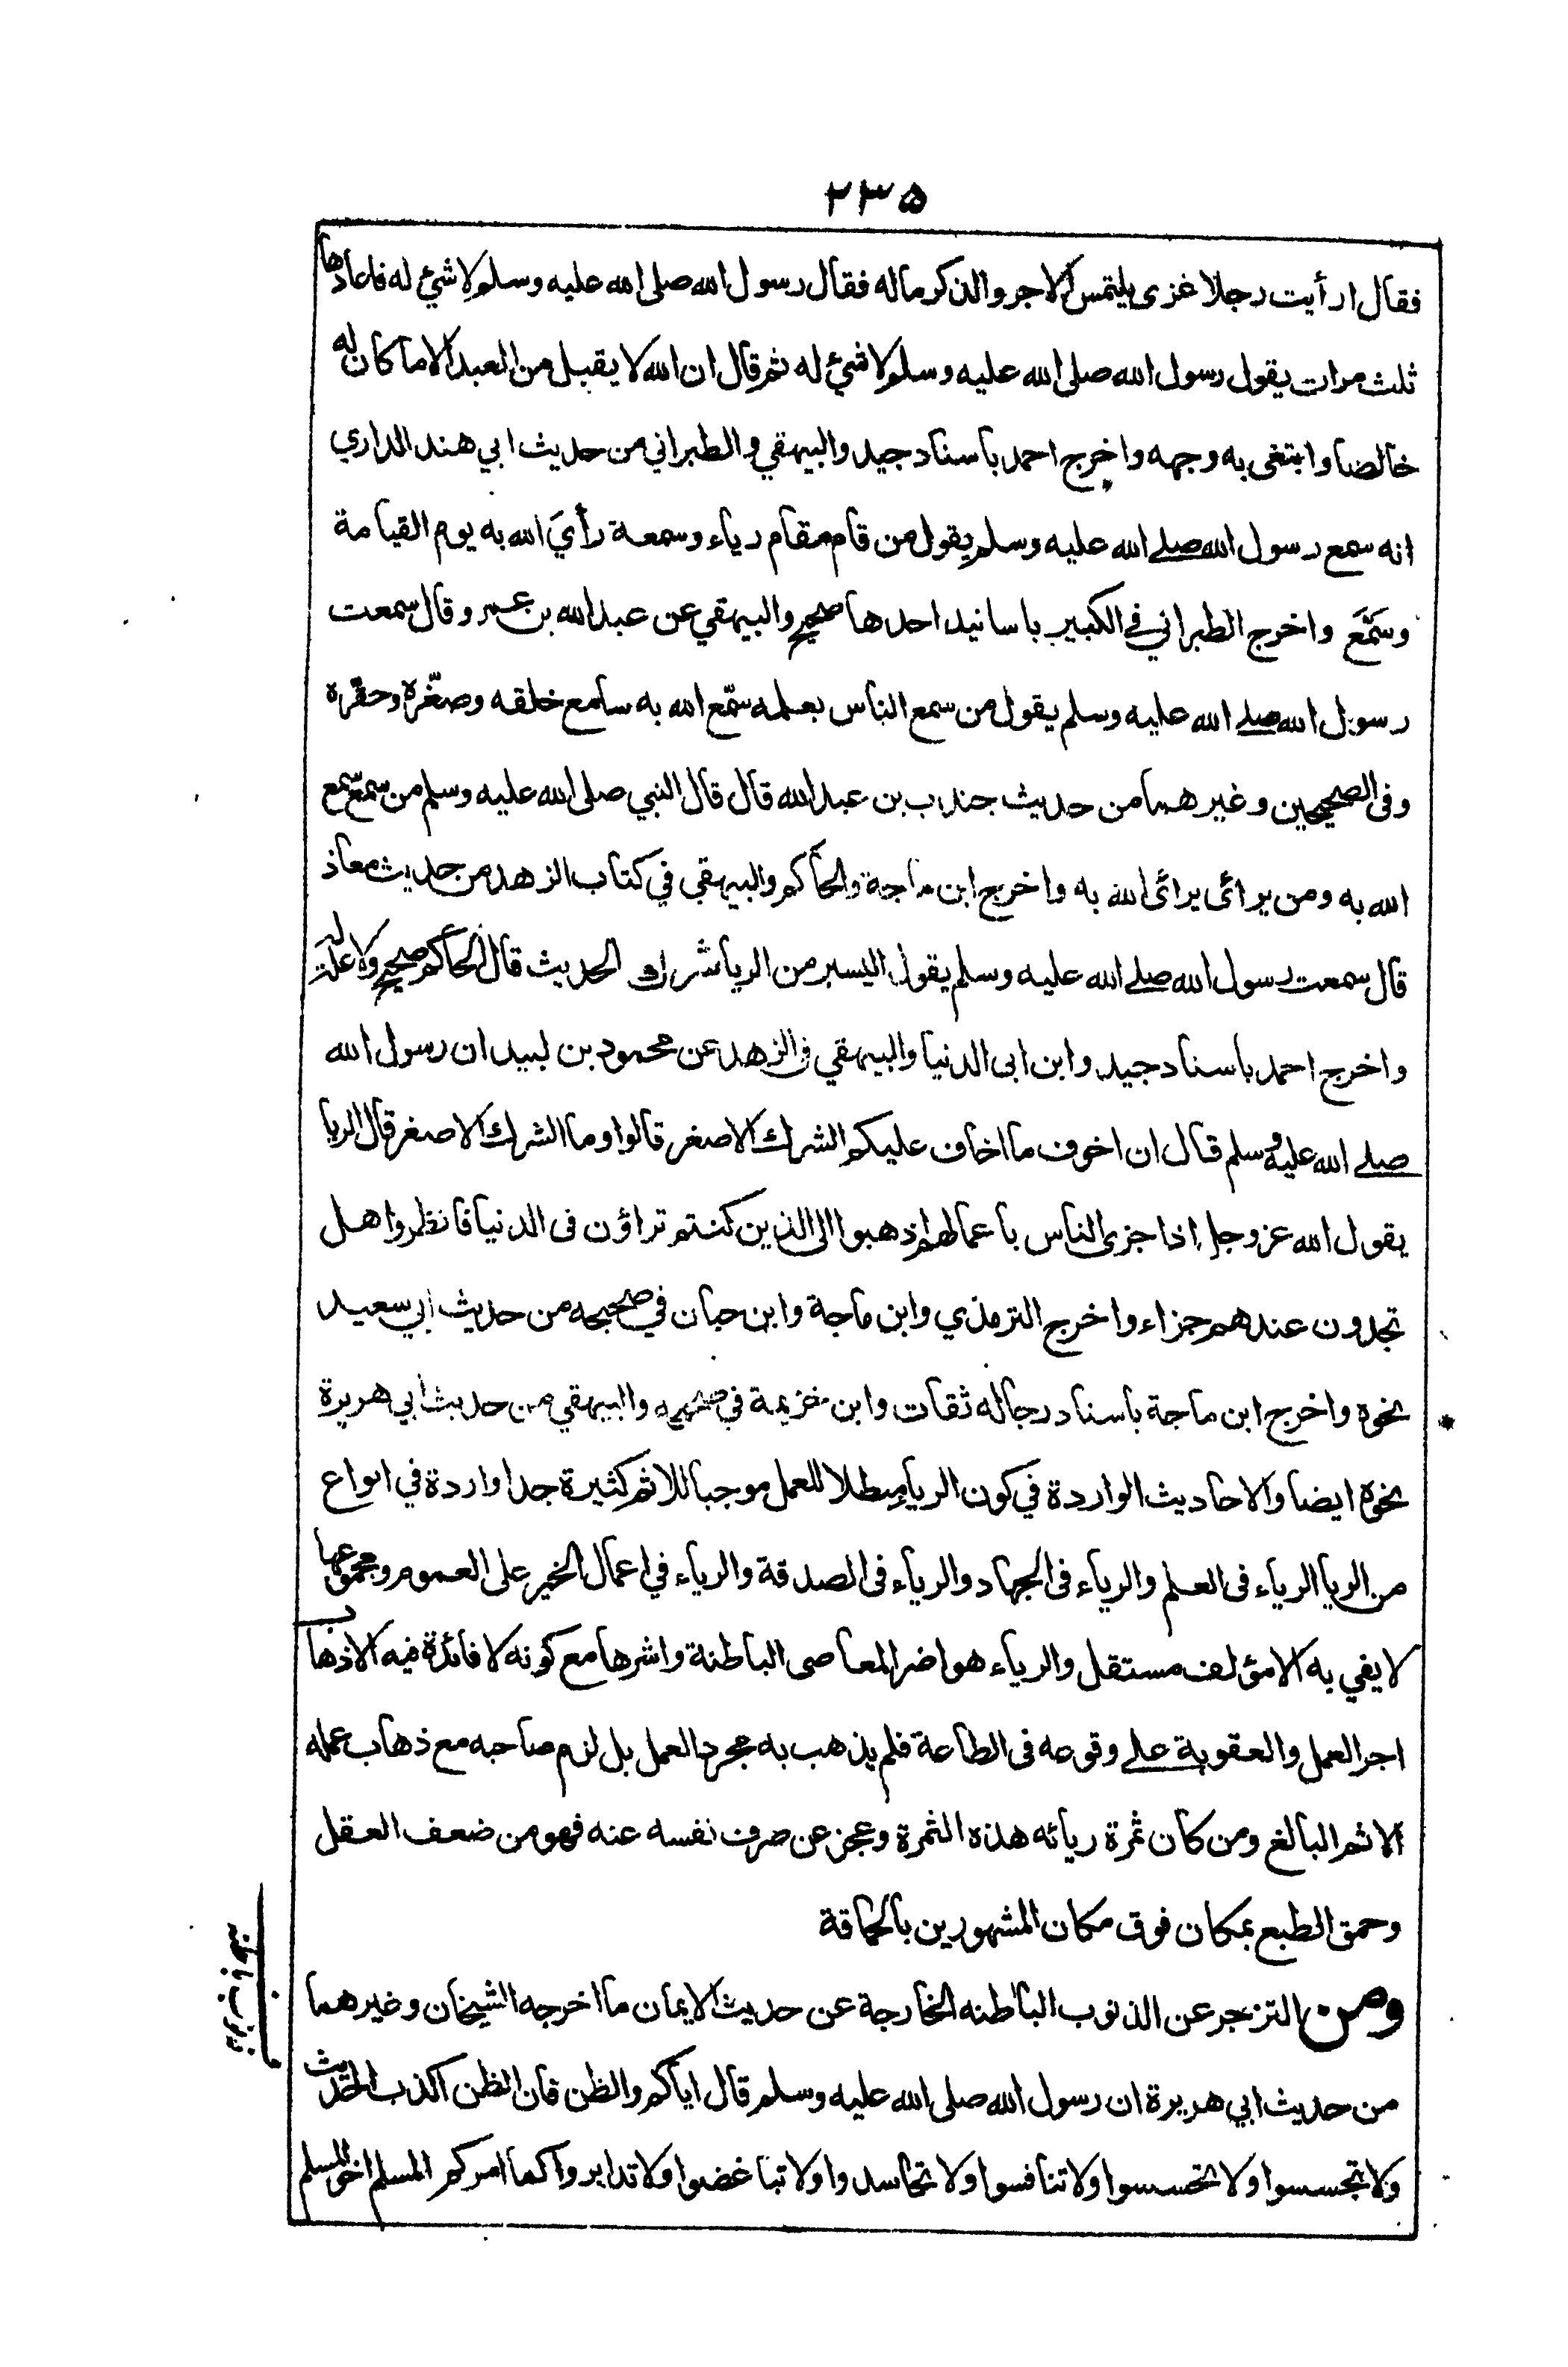 ٢٣٥
فقال ارأيت رجلا غزى يلتمس الاجر والذكر ماله فقال رسول الله صلى الله عليه وسلم لا شئ له فاعادها
ثلث مرات يقول رسول الله صلى الله عليه وسلم لا شئ له ثم قال ان الله لا يقبل من العبد الا ما كان له
خالصا وابتغى به وجهه واخرج احمد باسناد جيد والبيهقي والطبراني من حديث ابي هند الداري
انه سمع رسول الله صلے الله عليه وسلم يقول من قام مقام رياء وسمعة رأيَ الله به يوم القيامة
وسَمَّعَ واخرج الطبراني في الكبير باسانيد احدها صحيح والبيهقي عن عبد الله بن عمرو قال سمعت
رسول الله صلے الله عليه وسلم يقول من سمع الناس بعلمه سمّع الله به سامع خلقه وصغّره وحقره
وفى الصحيحين وغيرهما من حديث جندب بن عبد الله قال قال النبي صلى الله عليه وسلم من سمع سمع
الله به ومن يرائى يرائى الله به واخرج ابن ماجة والحاكم والبيهقي في كتاب الزهد من حديث معاذ
قال سمعت رسول الله صلے الله عليه وسلم يقول اليسير من الريا شرك الحديث قال الحاكم صحيح ولا علة له
واخرج احمد باسناد جيد وابن ابى الدنيا والبيهقي فى الزهد عن محمود بن لبيد ان رسول الله
صلے الله عليه وسلم قال ان اخوف ما اخاف عليكم الشرك الاصغر قالوا وما الشرك الاصغر قال الريا
يقول الله عز وجل اذا جزى الناس باعمالهم اذهبوا الى الذين كنتم تراؤن فى الدنيا فانظروا هل
تجدون عندهم جزاء واخرج الترمذي وابن ماجة وابن حبان في صحيحه من حديث ابي سعيد
نحوه واخرج ابن ماجة باسناد رجاله ثقات وابن خزيمة في صحيحه والبيهقي من حديث ابي هريرة
نحوه ايضا والاحاديث الواردة في كون الريا مبطلا للعمل موجبا للاثم كثيرة جدا واردة في انواع
من الريا الرياء فى العلم والرياء فى الجهاد والرياء فى الصدقة والرياء في اعمال الخير على العموم ومجموعها
لا يفي به الا مؤلف مستقل والرياء هو اضر المعاصى الباطنة واشرها مع كونه لا فائدة فيه الا ذهاب
اجر العمل والعقوبة علے وقوعه فى الطاعة فلم يذهب به مجرد العمل بل لزم صاحبه مع ذهاب عمله
الاثم البالغ ومن كان ثمرة ريائه هذه الثمرة وعجز عن صرف نفسه عنه فهو من ضعف العقل
وحمق الطبع بمكان فوق مكان المشهورين بالحماقة
ومن التزجر عن الذنوب الباطنه الخارجة عن حديث الايمان ما اخرجه الشيخان وغيرهما
من حديث ابي هريرة ان رسول الله صلى الله عليه وسلم قال اياكم والظن فان الظن اكذب الحديث
ولا تجسسوا ولا تحسسوا ولا تنافسوا ولا تحاسدوا ولا تباغضوا ولا تدابروا كما امركم المسلم اخو المسلم
ذنوب باطنه